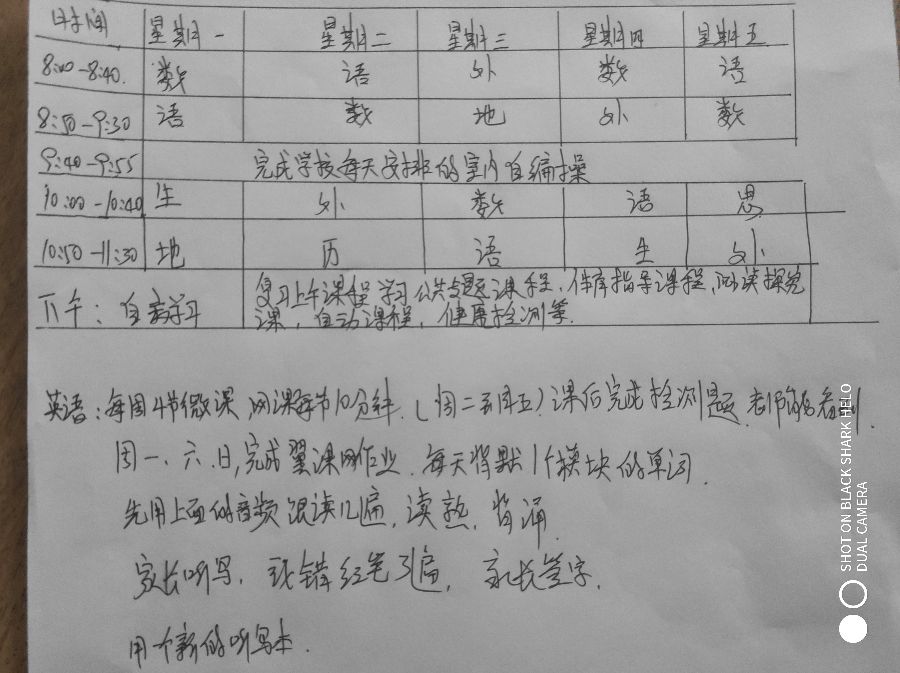 时间 星期一 星期二 星期三 星期四 星期五
8:00-8:40. 数 语 外 数 语
8:50-9:30 语 数 地 外 数
9:40-9:55 完成学校每天安排的室内自编操
10:00-10:40 生 外 数 语 思
10:50-11:30 地 历 语 生 外
下午: 自主学习 复习上午课程,学习公共专题课程,体育指导课程,阅读探究
课,自动课程,健康检测等.
英语:每周4节微课,网课每节10分钟.(周二到周五)课后完成检测题.老师能看到.
周一、六.日,完成翼课网作业.每天背默1个模块的单词.
先用上面的音频跟读几遍,读熟,背诵.
家长听写,改错红笔3遍,家长签字.
用一个新的听写本.
SHOT ON BLACK SHARK HELO
DUAL CAMERA